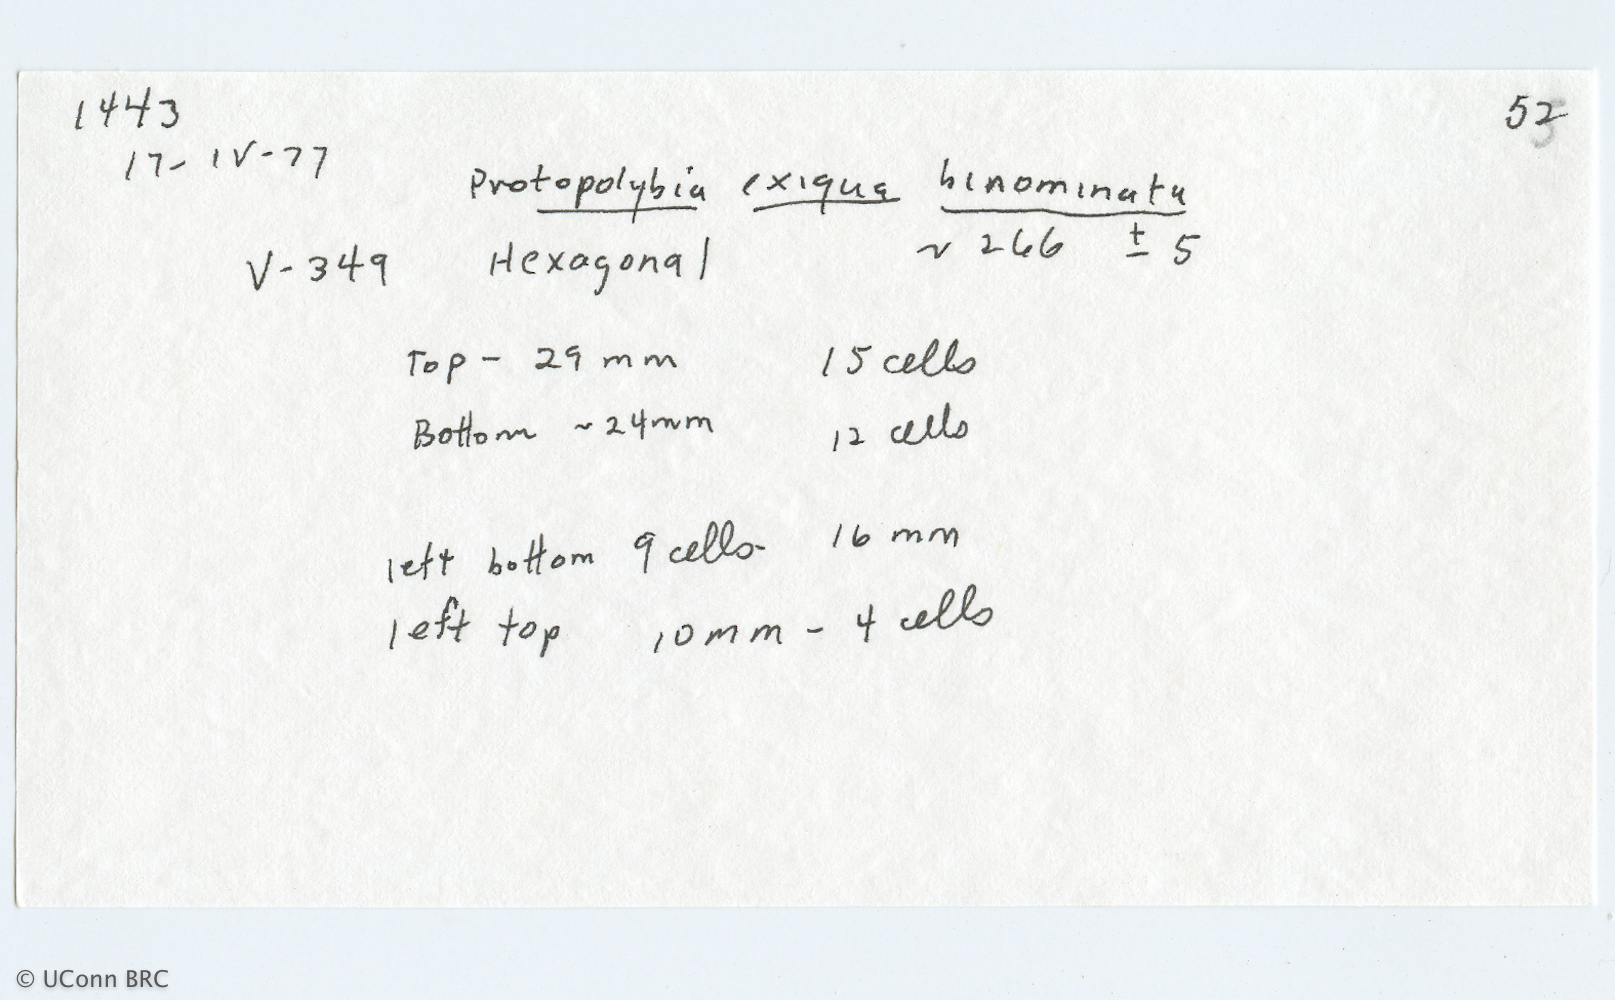 1443
52
17-IV-77
Protopolybia exiqua binominata
V-349 Hexagonal ~ 266 ± 5
Top - 29 mm 15 cells
Bottom ~24mm 12 cells
left bottom 9 cells- 16 mm
left top 10mm - 4 cells
© UConn BRC